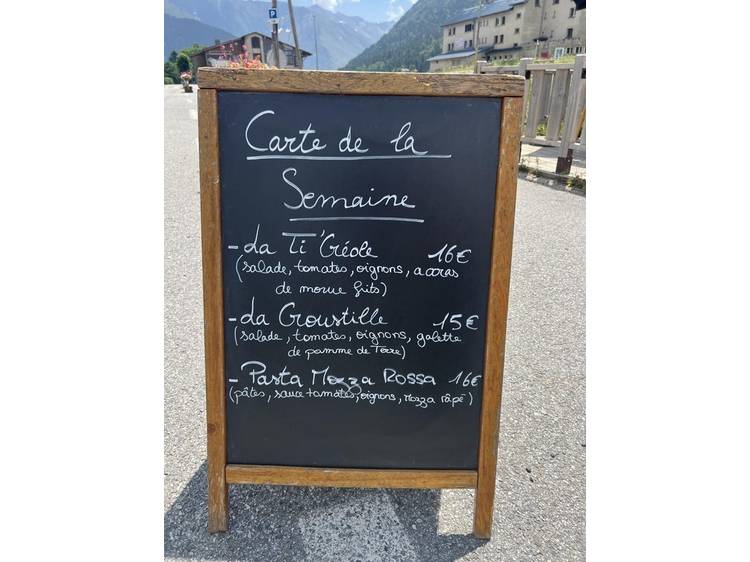 Carte de la
Semaine
- La Ti'Créole 16€
(salade, tomates, oignons, accras
de morue frits)
- La Croustille 15€
(salade, tomates, oignons, galette
de pomme de Terre)
- Pasta Mozza Rossa 16€
(pâtes, sauce tomates, oignons, Mozza râpé)
P